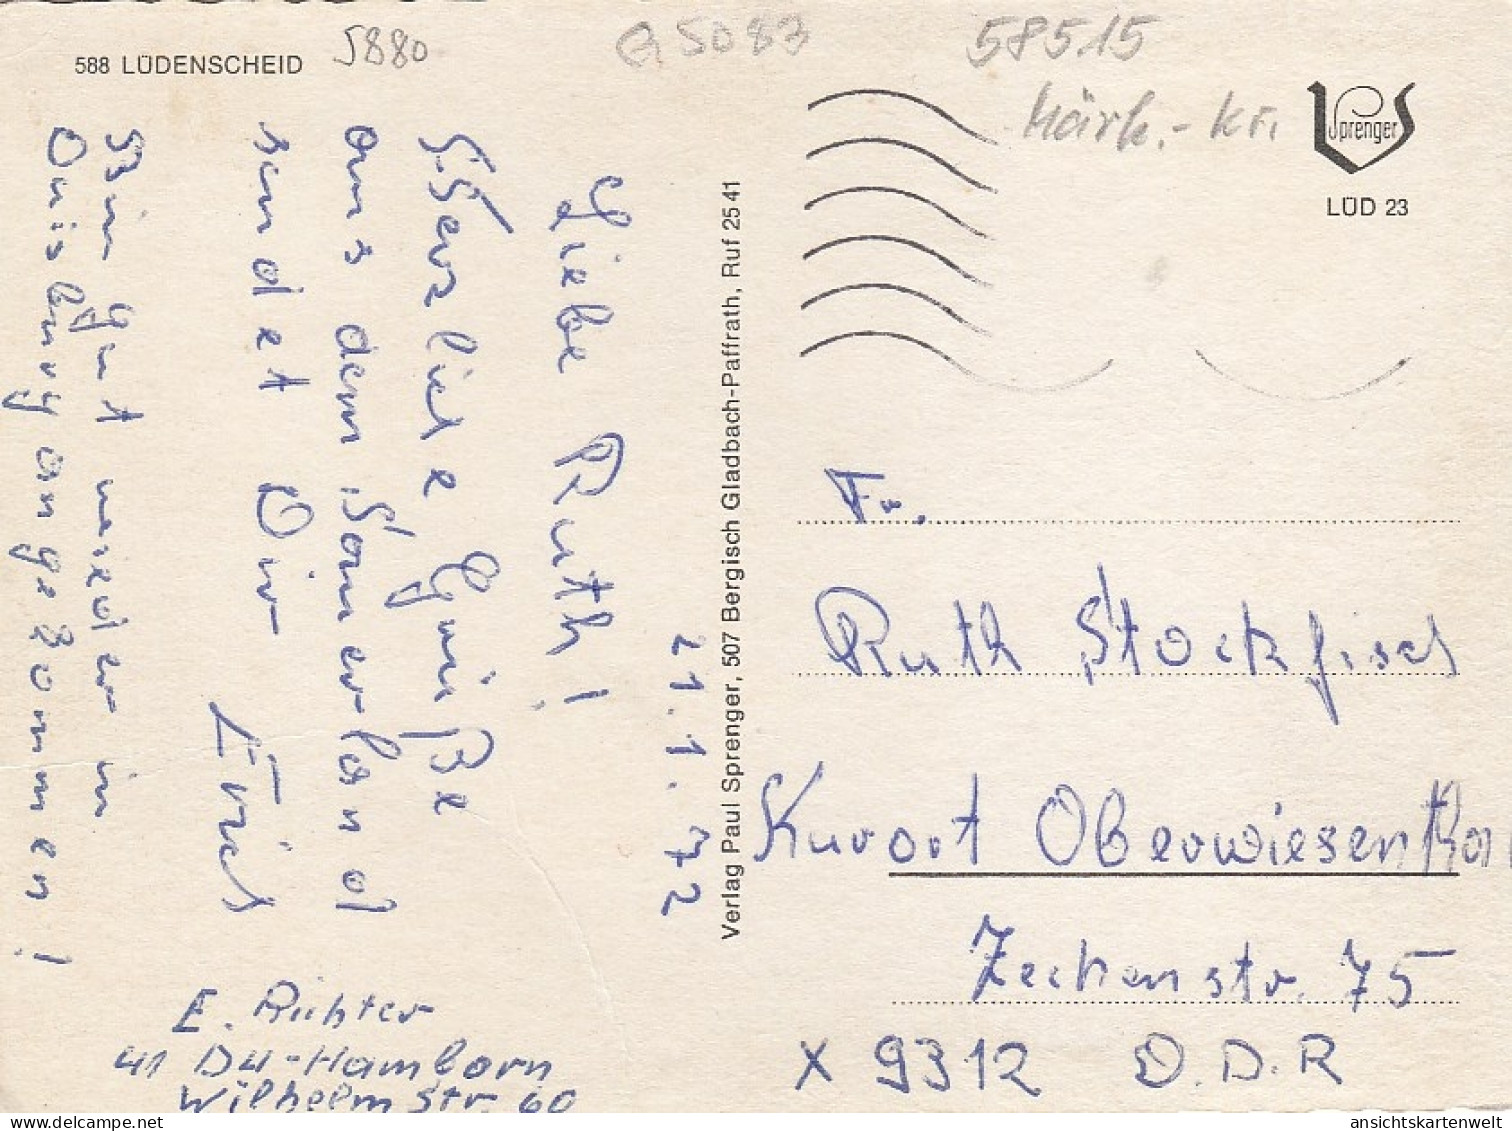 588 LÜDENSCHEID
5880
G 5083
58515
Märk.-Kr.
Sprenger
LÜD 23
21.1.72
Liebe Ruth!
Herzliche Grüße
aus dem Sauerland
sendet Dir
Erich
Bin gut wieder in
Duisburg angekommen!
E. Richter
41 DU-Hamborn
Wilhelmstr. 60
Verlag Paul Sprenger, 507 Bergisch Gladbach-Paffrath, Ruf 25 41
Fr.
Ruth Stockfisch
Kurort Oberwiesenthal
Zechenstr. 75
X 9312 D.D.R
delcampe.net
ansichtskartenwelt